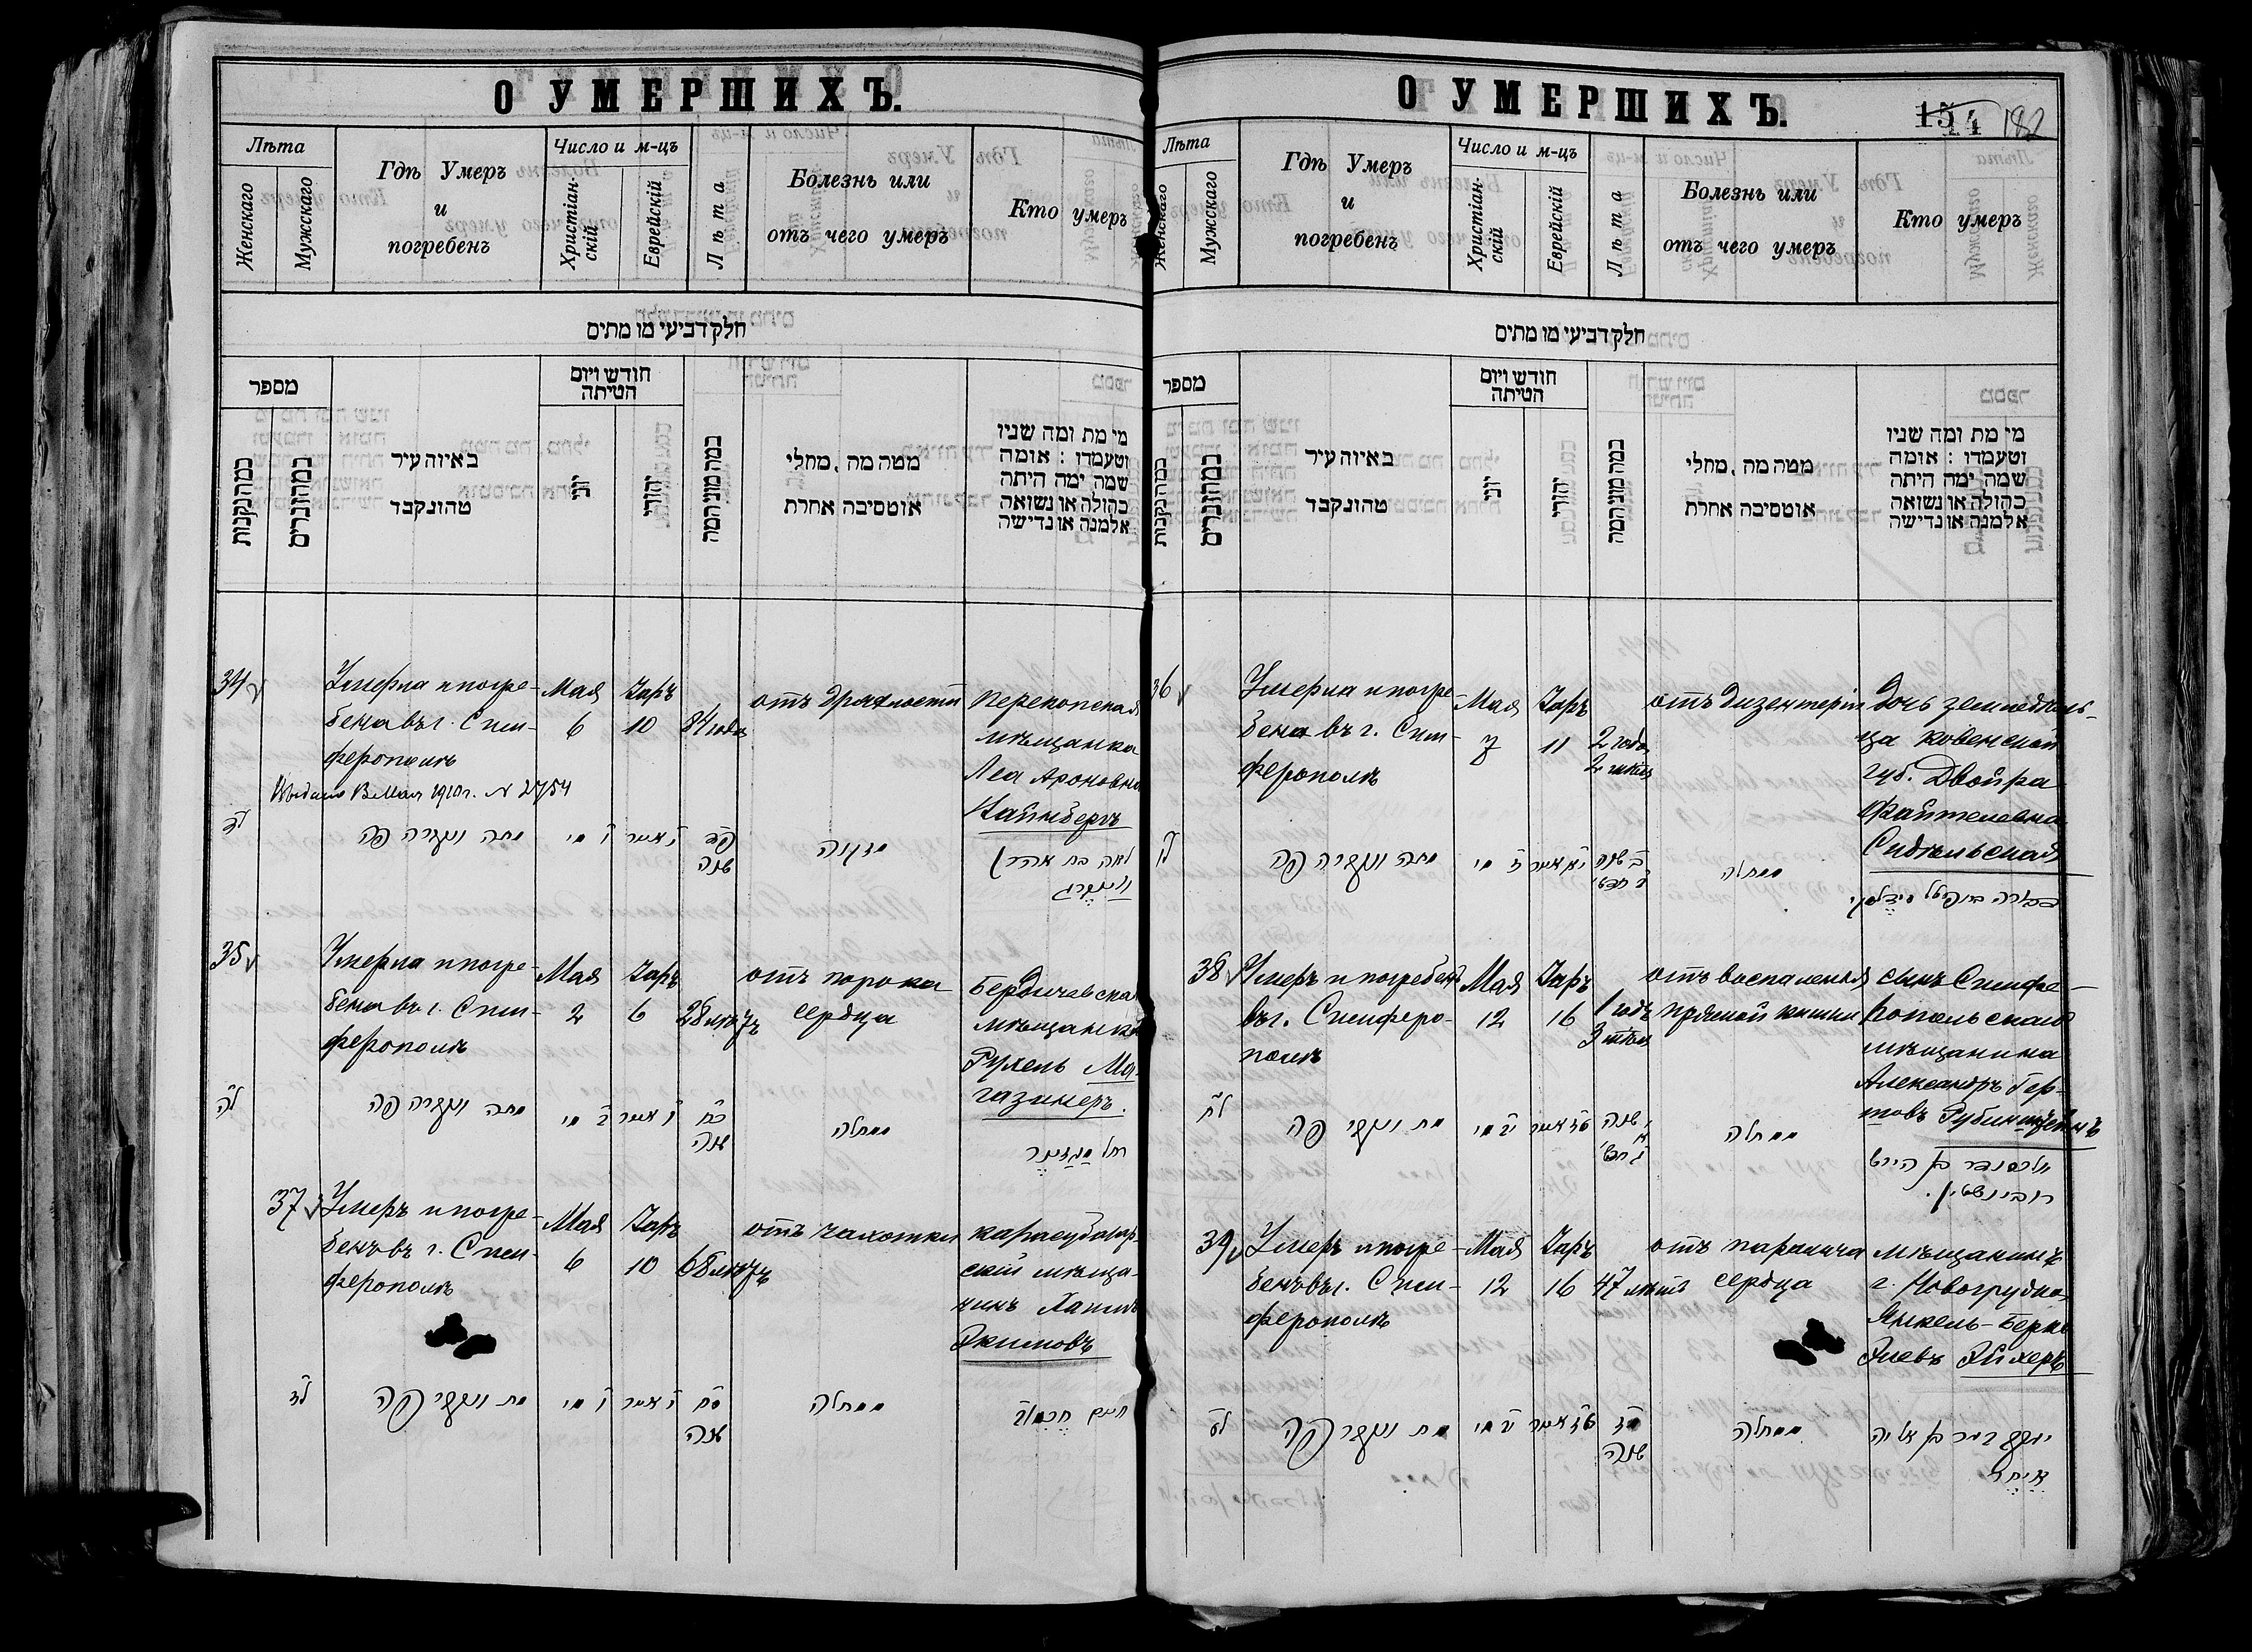 О УМЕРШИХЪ.
Лѣта
Женскаго
Мужскаго
Гдѣ Умеръ
и
погребенъ
Число и м-цъ
Христіан-
скій
Еврейскій
Лѣта
Болезнь или
отъ чего умеръ
Кто умеръ
חלק רביעי מו מתים
מספר
חודש ויום
המיתה
באיזה עיר
טהו נקבר
יוני
יהודי
ממה מה, מחלי
אוטסיבה אחרת
מי מת ומה שניו
וטעמדו : אומה
שמה ימה היתה
כהולה או נשואה
אלמנה או נדישה
34
Умерла и погре-
бена въ г. Сим-
ферополѣ
Мая
6
Іаръ
10
84 года
отъ дряхлости
Перекопская
мѣщанка
Леа Ароновна
Вайнберъ
Выдано 13 Мая 1910 г. № 2754
לד
מתה ונקברה פה
ו מי
י אייר
פד
שנה
מזקנה
לאה בת אהרן
35
Умерла и погре-
бена въ г. Сим-
ферополѣ
Мая
2
Іаръ
6
28 лѣтъ
отъ порока
сердца
Бердичевская
мѣщанка
Рухель Ма-
газинеръ.
לה
מתה ונקברה פה
ב מי
ו אייר
כח
שנה
ממחלה
רחל מגזינר
37
Умеръ и погре-
бенъ въ г. Сим-
ферополѣ
Мая
6
Іаръ
10
68 лѣтъ
отъ чахотки
карасубазар-
скій мѣща-
нинъ Хаимъ
לז
מת ונקבר פה
ו מי
י אייר
סח
שנה
ממחלה
חיים
О УМЕРШИХЪ.
15
14
182
Лѣта
Женскаго
Мужскаго
Гдѣ Умеръ
и
погребенъ
Число и м-цъ
Христіан-
скій
Еврейскій
Лѣта
Болезнь или
отъ чего умеръ
Кто умеръ
חלק רביעי מו מתים
מספר
חודש ויום
המיתה
באיזה עיר
טהו נקבר
יוני
יהודי
ממה מה, מחלי
אוטסיבה אחרת
מי מת ומה שניו
וטעמדו : אומה
שמה ימה היתה
כהולה או נשואה
אלמנה או נדישה
36
Умерла и погре-
бена въ г. Сим-
ферополѣ
Мая
7
Іаръ
11
2 года
2 мѣсяц
отъ дизентеріи
Дочь земледѣль-
ца Ковенской
губ. Двойра
Файтелевна
Сидѣльская
לו
מתה ונקברה פה
ז מי
יא אייר
ב שנה
ב חדשי
ממחלה
38
Умеръ и погребенъ
въ г. Симферо-
полѣ
Мая
12
Іаръ
16
1 годъ
3 мѣсяц
отъ воспаленія
прямой кишки
сынъ Симфе-
ропольскаго
мѣщанина
Александръ Гер-
товъ Рубинштейнъ
לח
מת ונקבר פה
יב מי
טז אייר
א שנה
ג חדשי
ממחלה
אלכסנדר בן הירט
רובינשטיין.
39
Умеръ и погре-
бенъ въ г. Сим-
ферополѣ
Мая
12
Іаръ
16
47 лѣтъ
отъ паралича
сердца
мѣщанинъ
г. Новогрудка
Янкель-Берко
Эліевъ Райхеръ
לט
מת ונקבר פה
יב מי
טז אייר
מז
שנה
ממחלה
יעקב דוב בן אליה